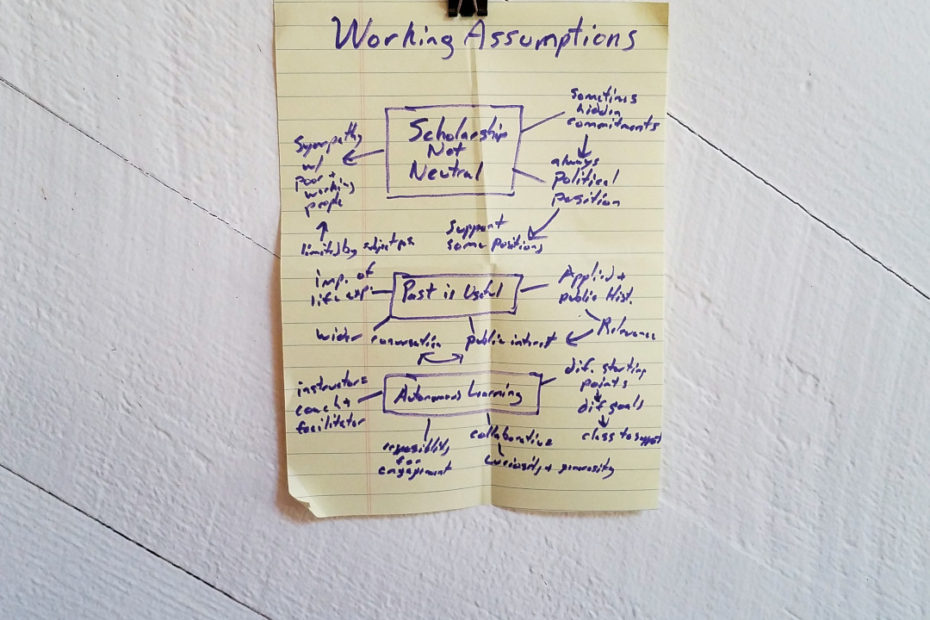 Working Assumptions
Scholarship
Not
Neutral
sometimes
hidden
commitments
always
political
position
support
some positions
Sympathy
w/
poor +
working
people
limited by
Past is Useful
imp. of
life exp.
Applied +
public Hist.
Relevance
public interest
wider conversation
Autonomous Learning
instructor =
coach +
facilitator
dif. starting
points
dif goals
class to support
responsibility
for
engagement
collaborative
curiosity + generosity